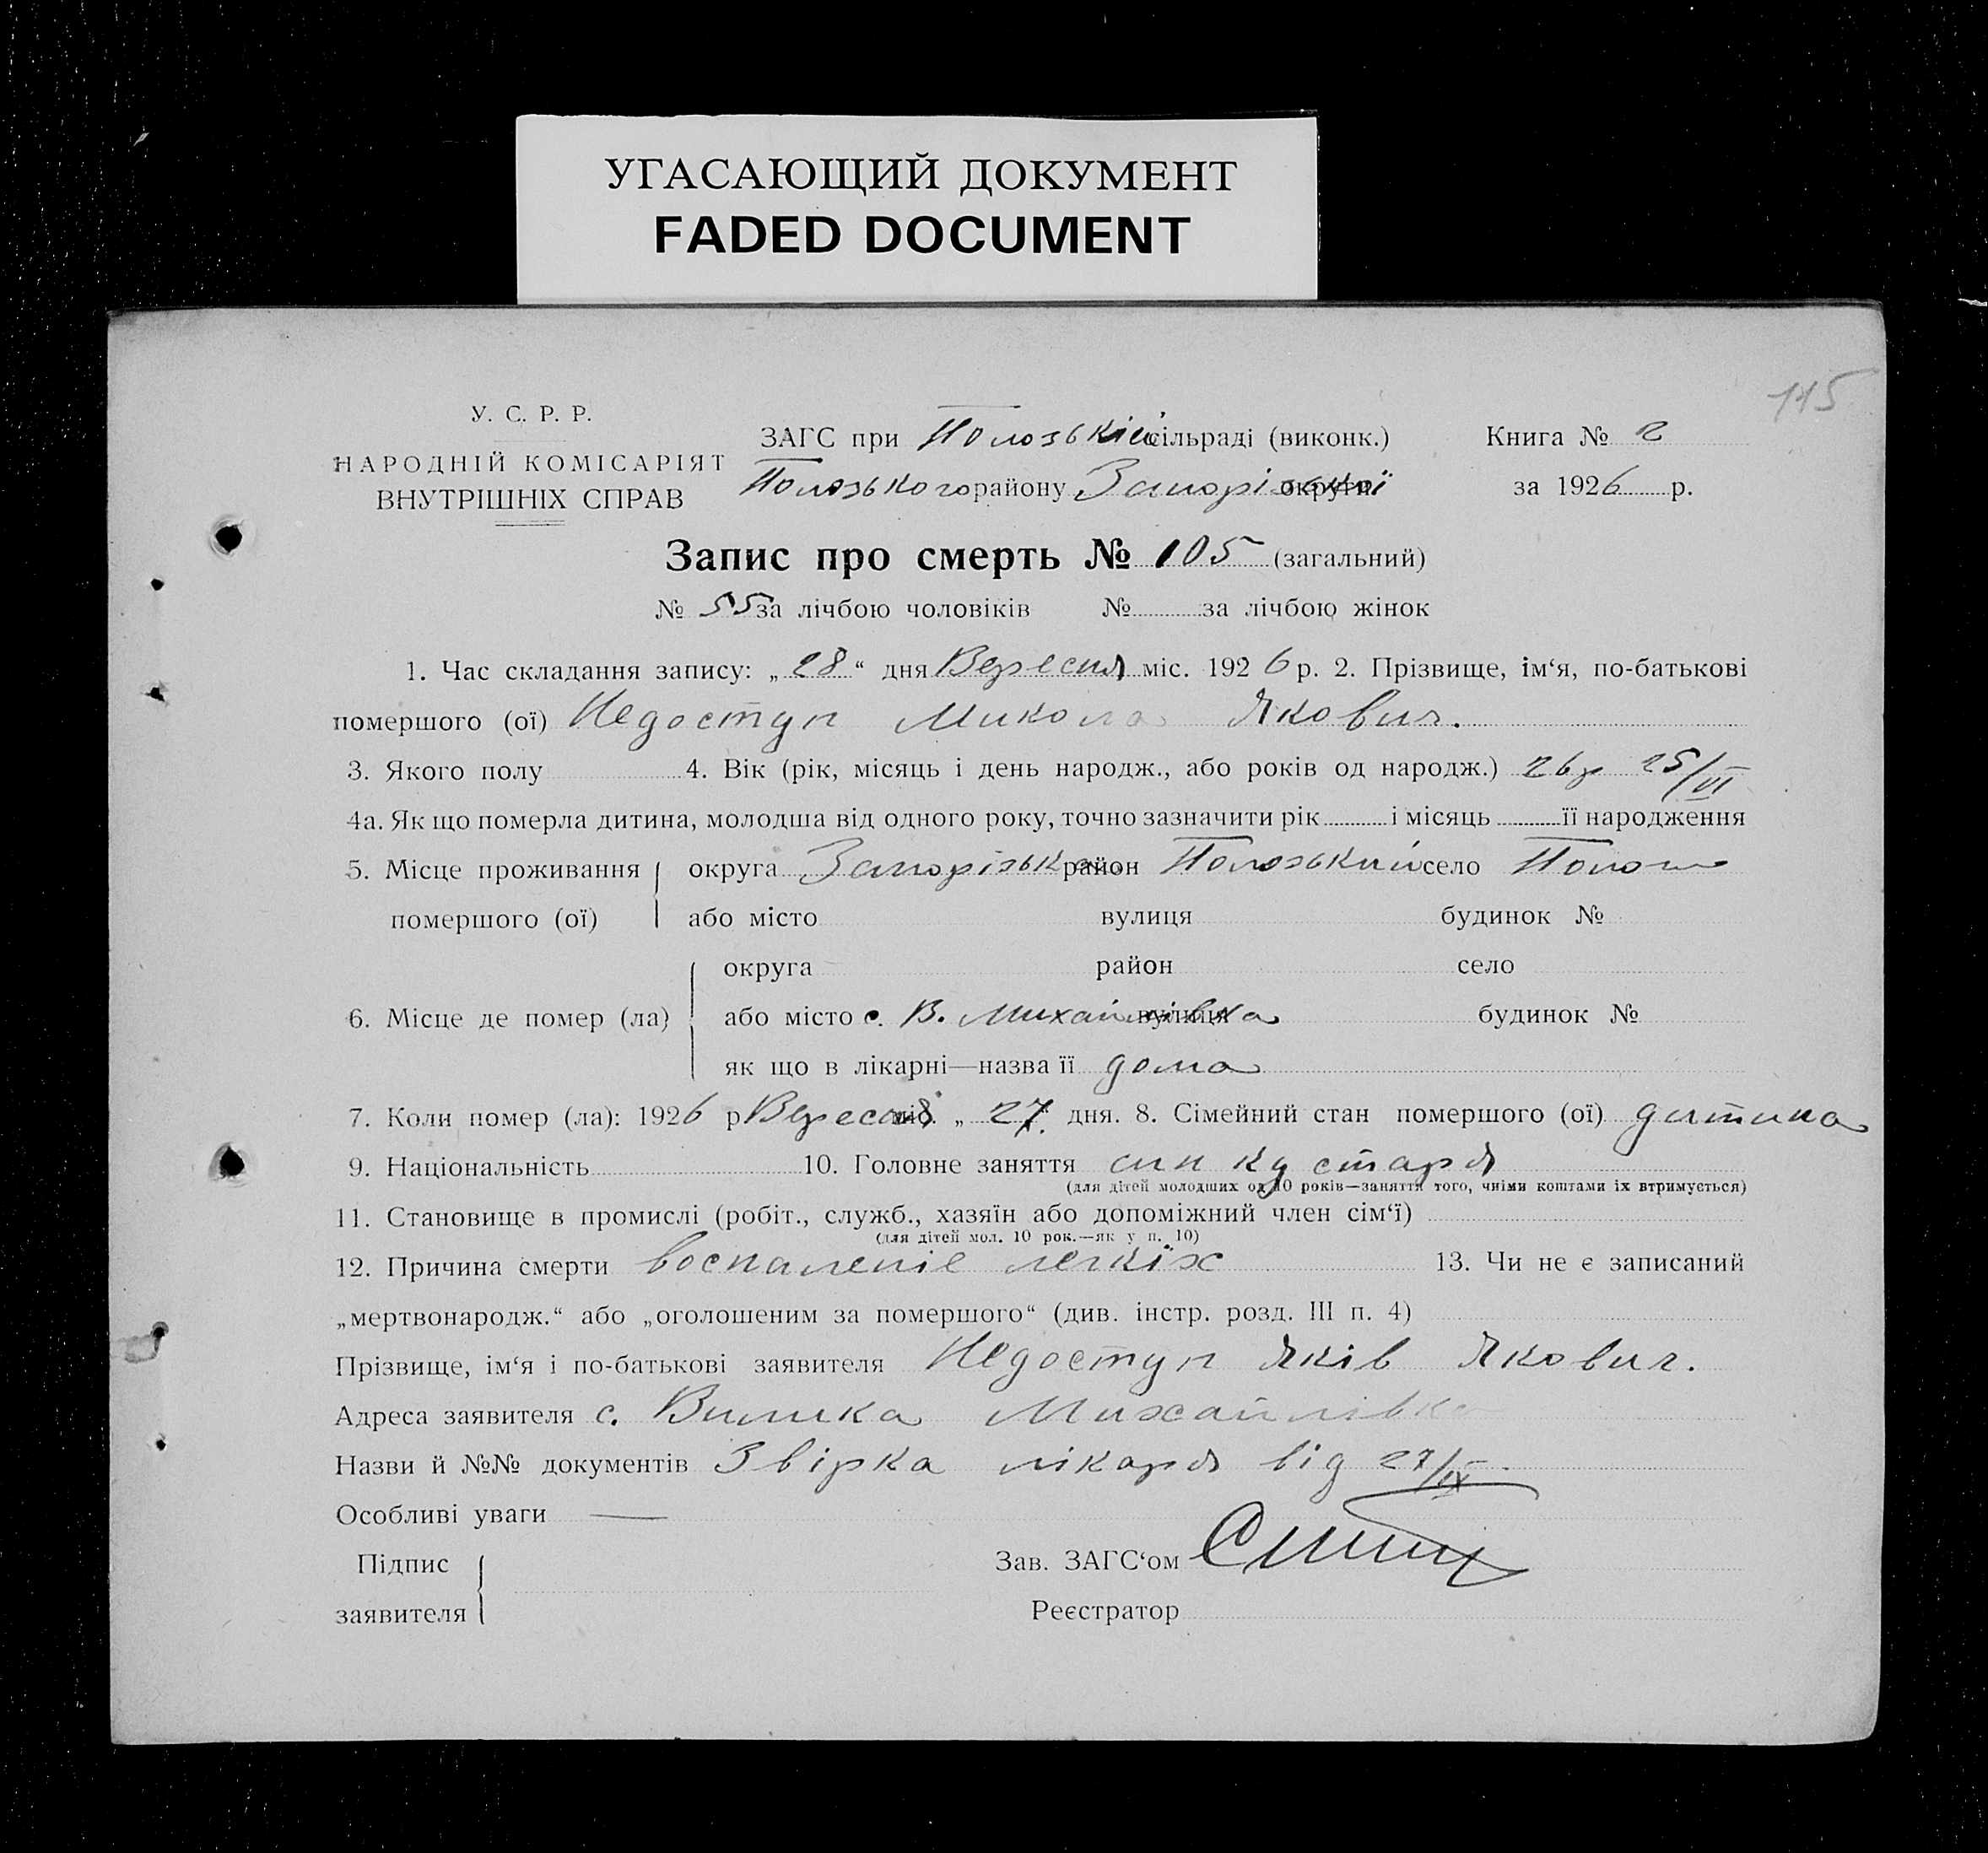 УГАСАЮЩИЙ ДОКУМЕНТ
FADED DOCUMENT
145
У. С. Р. Р.
НАРОДНІЙ КОМІСАРІЯТ
ВНУТРІШНІХ СПРАВ
ЗАГС при Пологській сільраді (виконк.) Книга № 2
Пологського району Запорізької округи за 1926 р.
Запис про смерть № 105 (загальний)
№ 55 за лічбою чоловіків № за лічбою жінок
1. Час складання запису: „28“ дня Вересня міс. 1926 р. 2. Прізвище, ім‘я, по-батькові
помершого (ої) Недоступ Микола Якович.
3. Якого полу 4. Вік (рік, місяць і день народж., або років од народж.) 26 р 25/VI
4а. Як що померла дитина, молодша від одного року, точно зазначити рік і місяць її народження
5. Місце проживання помершого (ої) округа Запорізька район Пологський село Пологи
або місто вулиця будинок №
6. Місце де помер (ла) округа район село
або місто с. В. Михайлівка вулиця будинок №
як що в лікарні—назва її дома
7. Коли помер (ла): 1926 р Вересня міс. „27. дня. 8. Сімейний стан помершого (ої) дитина
9. Національність 10. Головне заняття син кустаря
(для дітей молодших од 10 років—заняття того, чиїми коштами їх втримується)
11. Становище в промислі (робіт., служб., хазяїн або допоміжний член сім‘ї)
(для дітей мол. 10 рок.—як у п. 10)
12. Причина смерти воспаленіє легкіх 13. Чи не є записаний
„мертвонародж.“ або „оголошеним за помершого“ (див. інстр. розд. III п. 4)
Прізвище, ім‘я і по-батькові заявителя Недоступ Яків Якович.
Адреса заявителя с. Вилика Михайлівка
Назви й №№ документів Звірка лікаря від 27/IX.
Особливі уваги —
Підпис заявителя
Зав. ЗАГС‘ом
Реєстратор